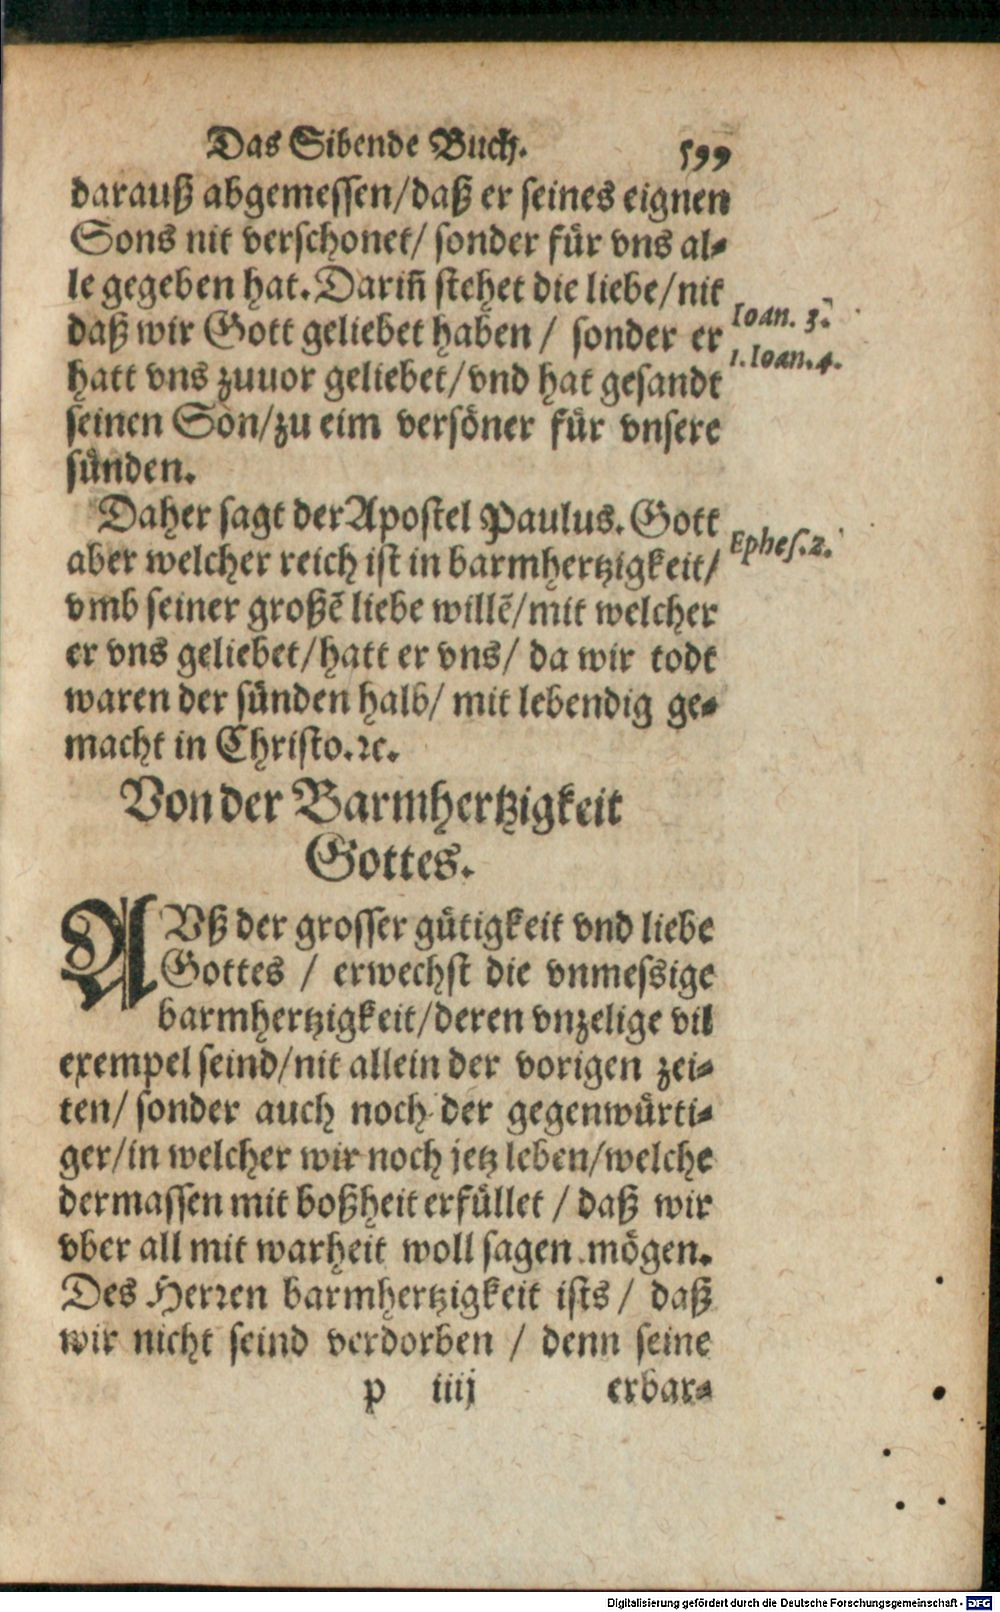 Das Sibende Buch. 599
darauß abgemessen/daß er seines eignen
Sons nit verschonet/ sonder für vns al-
le gegeben hat. Dariñ stehet die liebe/nit
daß wir Gott geliebet haben / sonder er
Ioan. 3.
1. Ioan. 4.
hatt vns zuuor geliebet/vnd hat gesandt
seinen Son/zu eim versöner für vnsere
sünden.
Daher sagt der Apostel Paulus. Gott
Ephes. 2.
aber welcher reich ist in barmhertzigkeit/
vmb seiner großẽ liebe willẽ/mit welcher
er vns geliebet/hatt er vns/ da wir todt
waren der sünden halb/ mit lebendig ge-
macht in Christo. ꝛc.
Von der Barmhertzigkeit
Gottes.
AVß der grosser gütigkeit vnd liebe
Gottes / erwechst die vnmessige
barmhertzigkeit/deren vnzelige vil
exempel seind/nit allein der vorigen zei-
ten/ sonder auch noch der gegenwürti-
ger/in welcher wir noch jetz leben/welche
dermassen mit boßheit erfüllet / daß wir
vber all mit warheit woll sagen mögen.
Des Herꝛen barmhertzigkeit ists / daß
wir nicht seind verdorben / denn seine
p iiij erbar-
Digitalisierung gefördert durch die Deutsche Forschungsgemeinschaft - DFG